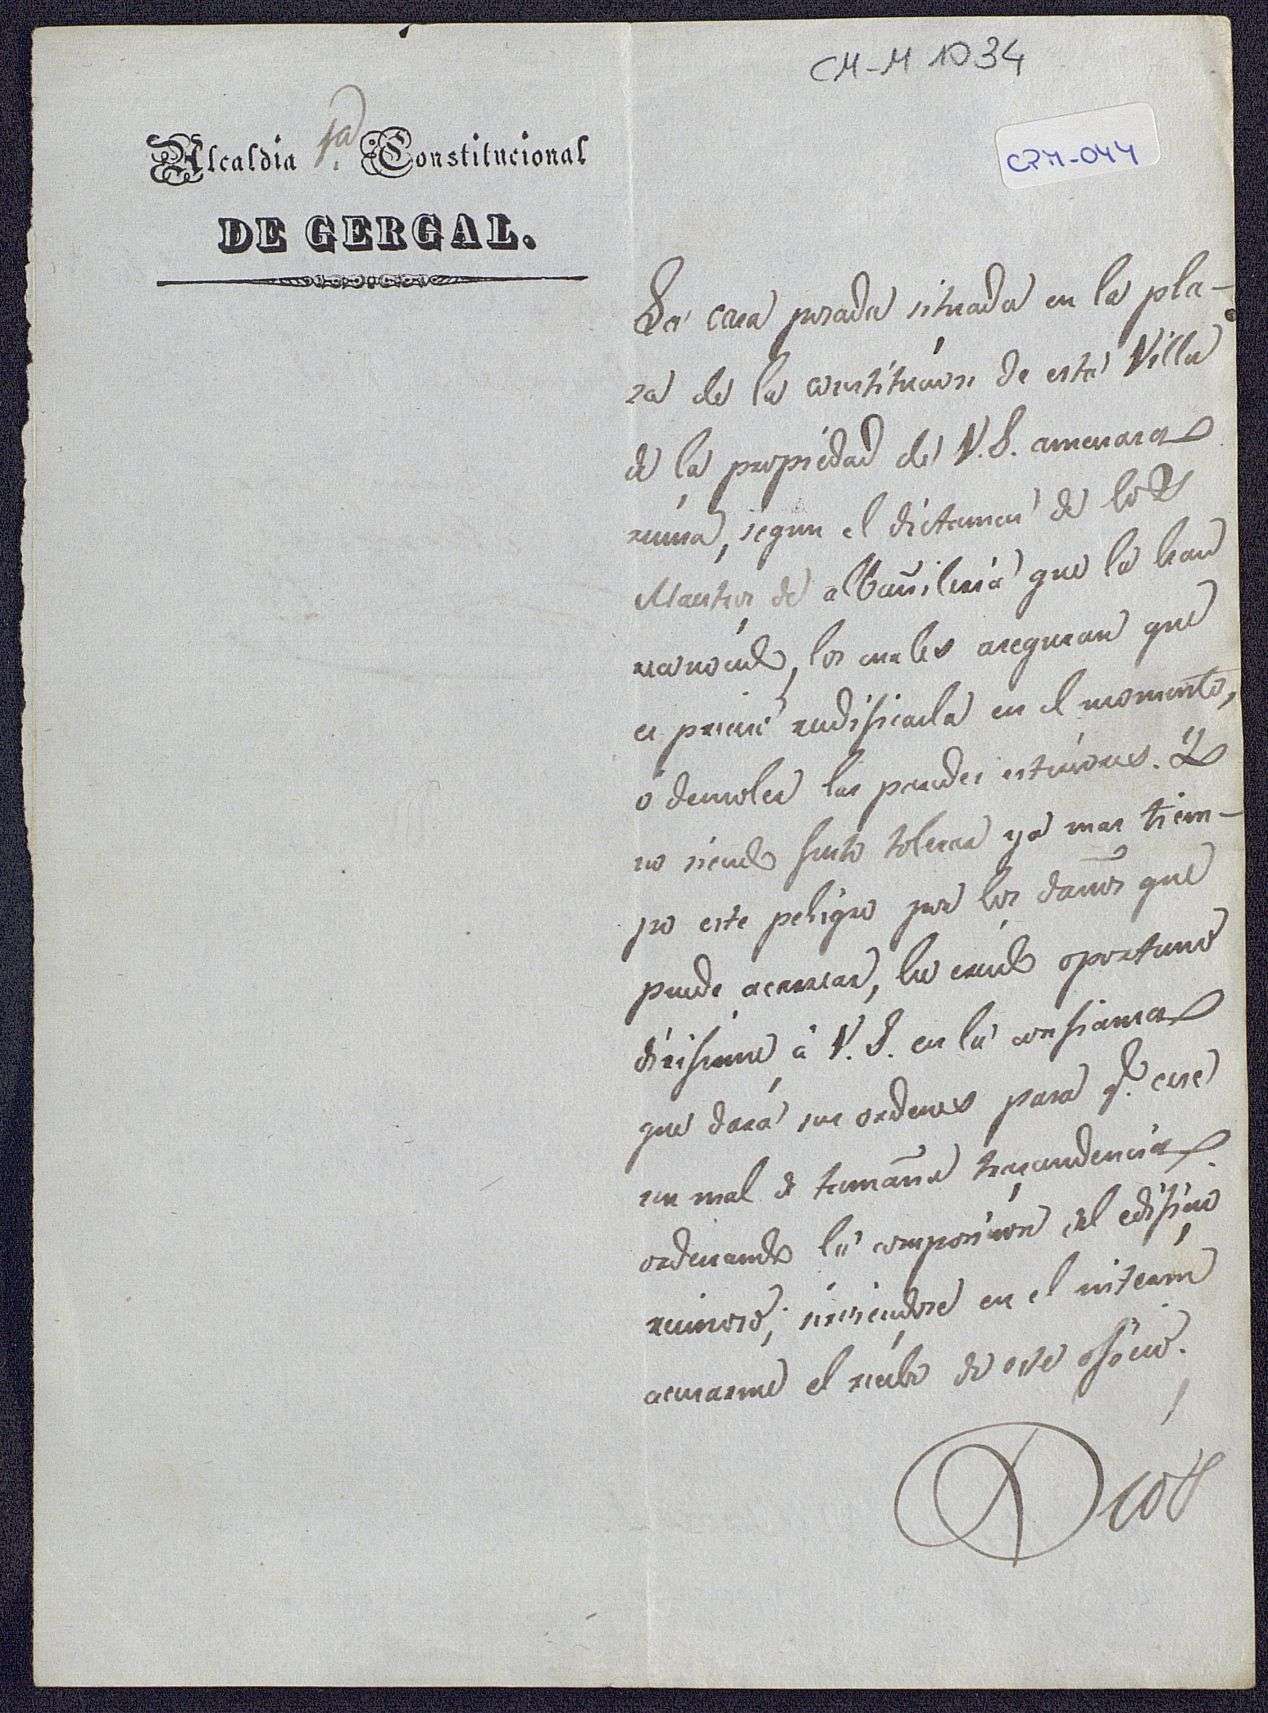 CM-M 1034
CPM-044
Alcaldia 1ª Constitucional
DE GERGAL.
La casa posada situada en la pla-
za de la constitucion de esta Villa
de la propiedad de V.S. amenaza
ruina, segun el dictamen de los
Maestros de albañileria que la han
reconocido, los cuales aseguran que
es preciso redificarla en el momento,
ó demoler las paredes esteriores. Y
no siendo justo tolerar ya mas tiem-
po este peligro por los daños que
puede acarrear, he creido oportuno
dirijirme á V.S. en la confianza
que dará sus ordenes para q.e cese
un mal de tamaña trascendencia
ordenando la composicion del edificio
ruinoso; sirviendose en el interin
acusarme el recibo de este oficio.
Dios